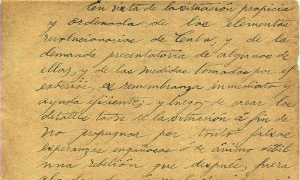 En vista de la situación propicia
y ordenada de los elementos
revolucionarios de Cuba, y de
la demanda de algunos de
ellos, y de las medidas tomadas por el
exterior, inmediato y
ayuda eficiente, y luego de crear los
detalles todos de la situación á fin de
no por tanto falsas
esperanzas engañosas ó de ánimo débil
una rebelión que después fuera